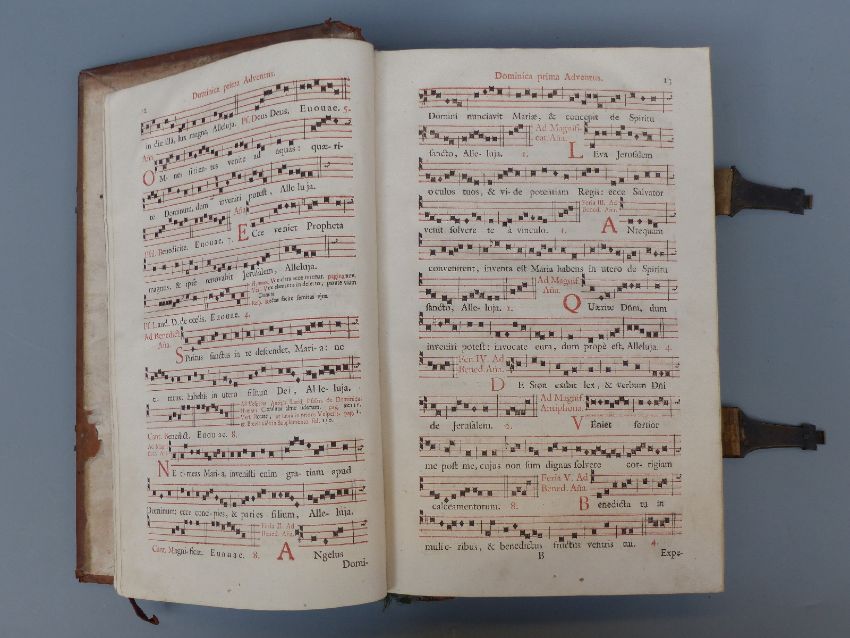 12 Dominica prima Adventus.
in die illa, lux magna, Alleluja. Ps. Deus Deus. Euouae. 5.
Aña
O Mnes sitientes venite ad aquas: quæri-
te Dominum, dum inveniri potest, Alleluja.
Aña
Psl. Benedicite. Euouae. 7. E Cce veniet Propheta
magnus, & ipse renovabit Jerusalem, Alleluja.
Psl. Laud. D. de cœlis. Euouae. 4.
Ad Benedict.
Aña.
S Piritus sanctus in te descendet, Maria: ne
timeas, habebis in utero filium Dei, Alleluja.
Cant. Benedict. Euouae. 8.
Ad Mag
N E timeas Maria, invenisti enim gratiam apud
Dominum: ecce concipies, & paries filium, Alleluja.
Feria II. Ad
Bened. Aña.
Cant. Magnificat. Euouae. 8. A Ngelus
Domi-
Dominica prima Adventus. 13
Domini nunciavit Mariæ, & concepit de Spiritu
Ad Magnifi-
cat. Aña.
sancto, Alleluja. 1. L Eva Jerusalem
oculos tuos, & vide potentiam Regis: ecce Salvator
Feria III. Ad
Bened. Aña.
venit solvere te à vinculo. 1. A Ntequam
convenirent, inventa est Maria habens in utero de Spiritu
Ad Magnif.
Aña.
sancto, Alleluja. 1. Q Uærite Dñm, dum
inveniri potest: invocate eum, dum propè est, Alleluja. 4.
Feria IV. Ad
Bened. Aña.
D E Sion exibit lex, & verbum Dñi
Ad Magnif
Antiphona.
de Jerusalem. 2. V Eniet fortior
me post me, cujus non sum dignus solvere corrigiam
Feria V. Ad
Bened. Aña.
calceamentorum. 8. B Enedicta tu in
mulieribus, & benedictus fructus ventris tui. 4.
B Expe-